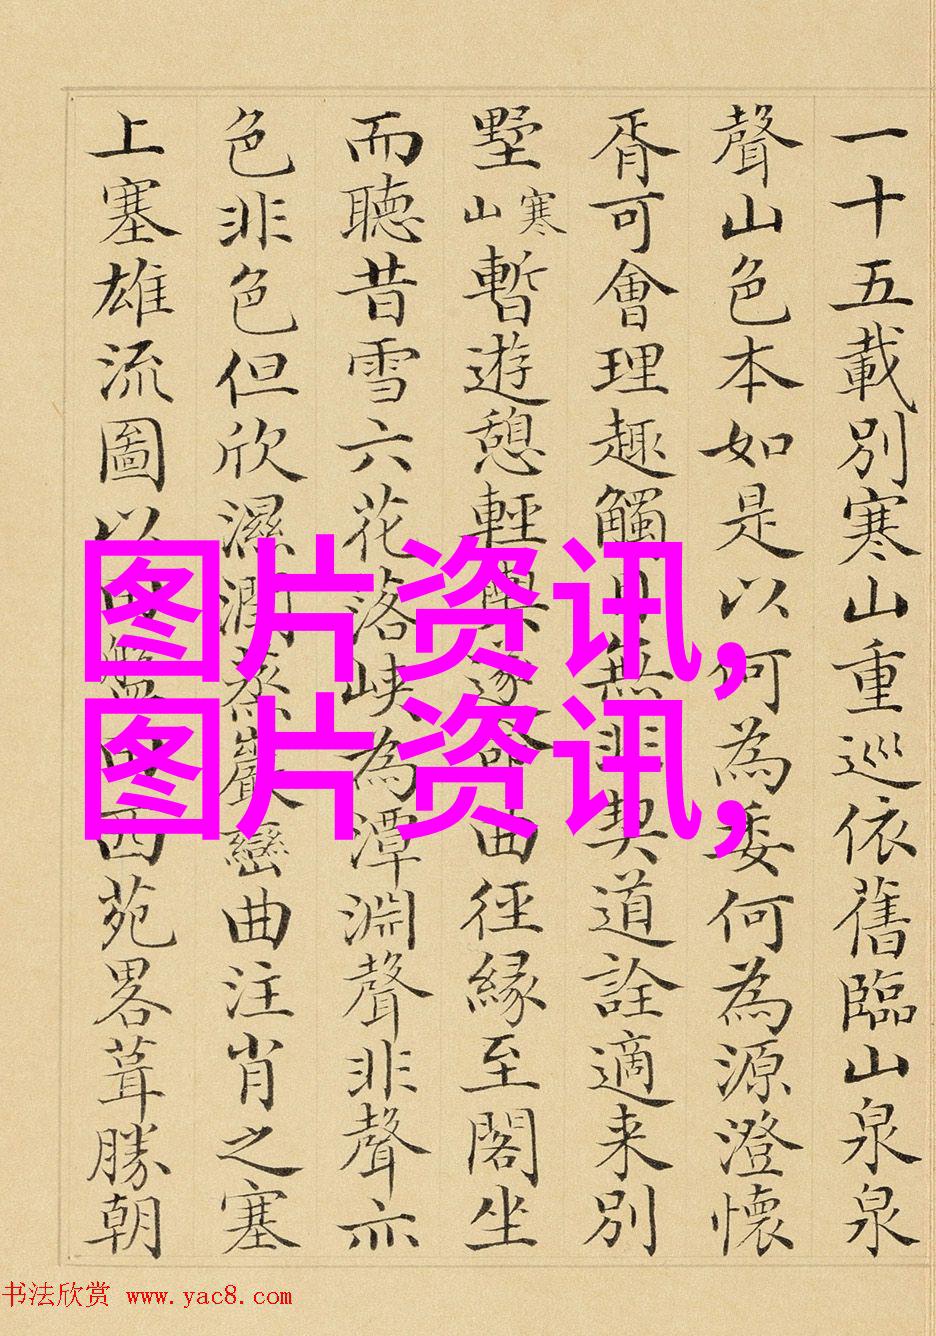 一十五載別寒山重巡依舊臨山泉泉
聲山色本如是以何為委何為源澄懷
胥可會理趣觸無非契道詮適来別
墅寒山暫遊憩輕輿遂曲徑緣至閣坐
而聽昔雪六花落峽為潭淵聲非聲亦
色非色但欣濕潤蒸巖巒曲注肖之塞
上塞雄流圖以西苑畧葺勝朝
图片资讯,
图片资讯,
书法欣赏 www.yac8.com